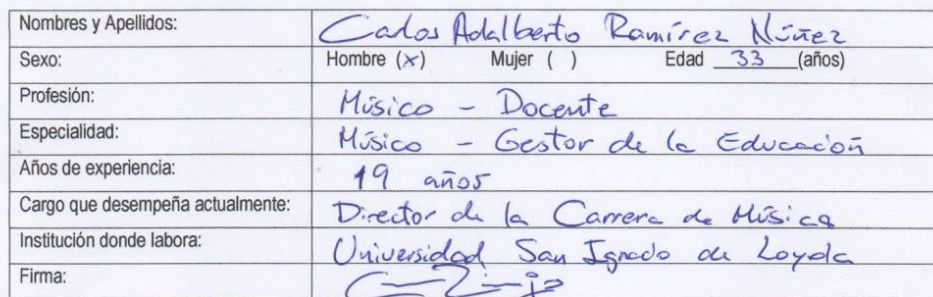 Nombres y Apellidos: Carlos Adalberto Ramírez Núñez
Sexo: Hombre (x) Mujer ( ) Edad 33 (años)
Profesión: Músico - Docente
Especialidad: Músico - Gestor de la Educación
Años de experiencia: 19 años
Cargo que desempeña actualmente: Director de la Carrera de Música
Institución donde labora: Universidad San Ignacio de Loyola
Firma: